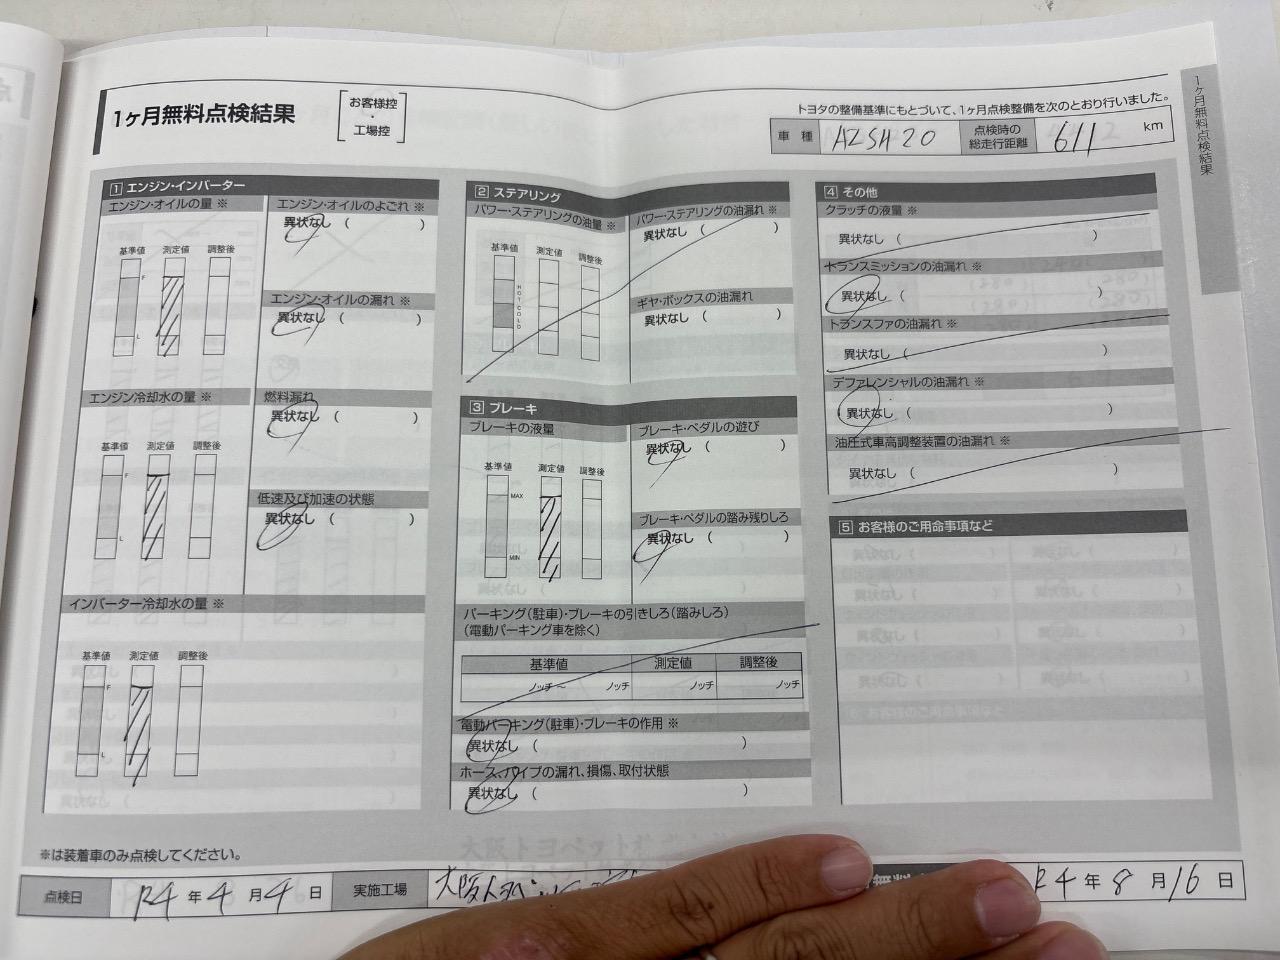 1ヶ月無料点検結果
お客様控
・
工場控
トヨタの整備基準にもとづいて、1ヶ月点検整備を次のとおり行いました。
車種 AZSH20 点検時の総走行距離 611 km
1ヶ月無料点検結果
1 エンジン・インバーター
エンジン・オイルの量 ※
基準値 測定値 調整後
F
L
エンジン・オイルのよごれ ※
異状なし ( )
エンジン・オイルの漏れ ※
異状なし ( )
エンジン冷却水の量 ※
基準値 測定値 調整後
F
L
燃料漏れ
異状なし ( )
低速及び加速の状態
異状なし ( )
インバーター冷却水の量 ※
基準値 測定値 調整後
F
L
2 ステアリング
パワー・ステアリングの油量 ※
基準値 測定値 調整後
HOT
COLD
パワー・ステアリングの油漏れ ※
異状なし ( )
ギヤ・ボックスの油漏れ
異状なし ( )
3 ブレーキ
ブレーキの液量
基準値 測定値 調整後
MAX
MIN
ブレーキ・ペダルの遊び
異状なし ( )
ブレーキ・ペダルの踏み残りしろ
異状なし ( )
パーキング(駐車)・ブレーキの引きしろ(踏みしろ)
(電動パーキング車を除く)
基準値 測定値 調整後
ノッチ ~ ノッチ ノッチ ノッチ
電動パーキング(駐車)・ブレーキの作用 ※
異状なし ( )
ホース、パイプの漏れ、損傷、取付状態
異状なし ( )
4 その他
クラッチの液量 ※
異状なし ( )
トランスミッションの油漏れ ※
異状なし ( )
トランスファの油漏れ ※
異状なし ( )
デファレンシャルの油漏れ ※
異状なし ( )
油圧式車高調整装置の油漏れ ※
異状なし ( )
5 お客様のご用命事項など
※は装着車のみ点検してください。
点検日 R4 年 4 月 4 日 実施工場 大阪トヨペ
無料 R4 年 8 月 16 日